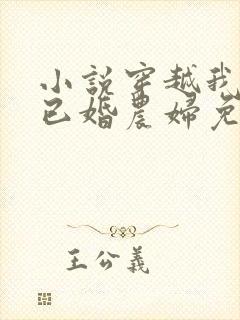 小說穿越我
已婚農婦免
王公義